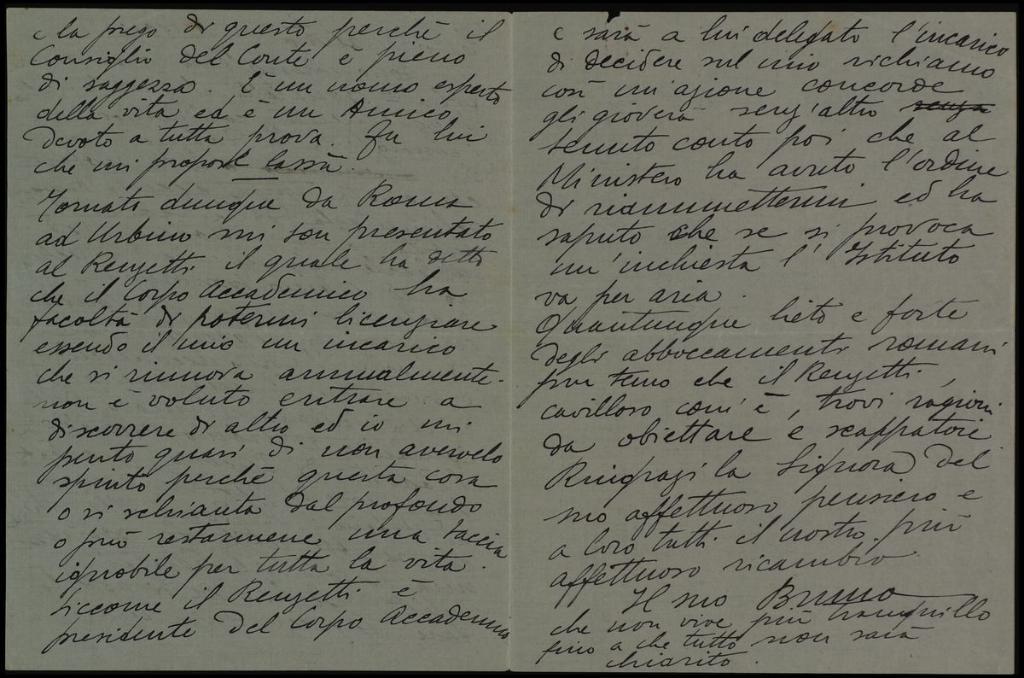 e la prego di questo perchè il
Consiglio del Conte è pieno
di saggezza. È un uomo esperto
della vita ed è un Amico
devoto a tutta prova. Fu lui
che mi propose lassù.
Tornato dunque da Roma
ad Urbino mi son presentato
al Renzetti il quale ha detto
che il Corpo Accademico ha
facoltà di potermi licenziare
essendo il mio un incarico
che si rinnova annualmente.
non è voluto entrare a
discorrere di altro ed io mi
pento quasi di non avervelo
spinto perchè questa cosa
o si schianta dal profondo
o può restarmene una taccia
ignobile per tutta la vita.
Siccome il Renzetti è
presidente del Corpo Accademico
e sarà a lui delegato l'incarico
di decidere sul mio richiamo
così un'azione concorde
gli gioverà senz'altro senza
tenuto conto poi che al
Ministero ha avuto l'ordine
di riammettermi ed ha
saputo che se si provoca
un'inchiesta l'Istituto
va per aria.
Quantunque lieto e forte
degli abboccamenti romani
pur temo che il Renzetti,
cavilloso com'è, trovi ragioni
da obiettare e scappatoie
Ringrazi la Signora del
suo affettuoso pensiero e
a loro tutti il nostro più
affettuoso ricambio.
Il suo Bruno
che non vive più tranquillo
fino a che tutto non sarà
chiarito.